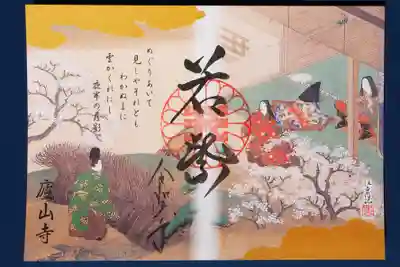 めぐりあいて
見しやそれとも
わかぬまに
雲がくれにし
夜半の月影
若紫
廬山寺